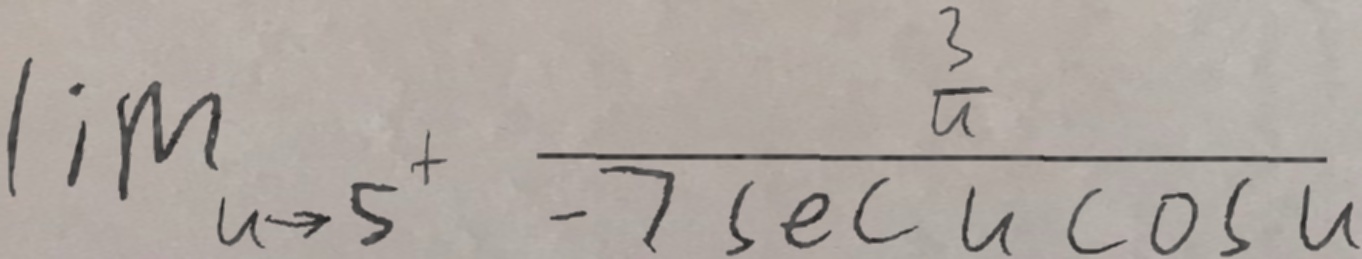 \lim_{u \to 5^+} \frac{\frac{3}{u}}{-7 \sec u \cos u}